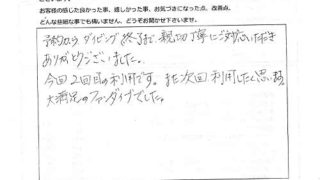 お客様の感じた良かった事、嬉しかった事、お気づきになった点、改善点、
どんな些細な事でも構いません、どうぞお聞かせ下さいませ。
予約からダイビング終了まで親切丁寧にご対応いただき
ありがとうございました。
今回2回目の利用です。また次回利用したく思い
大満足のファンダイブでした。